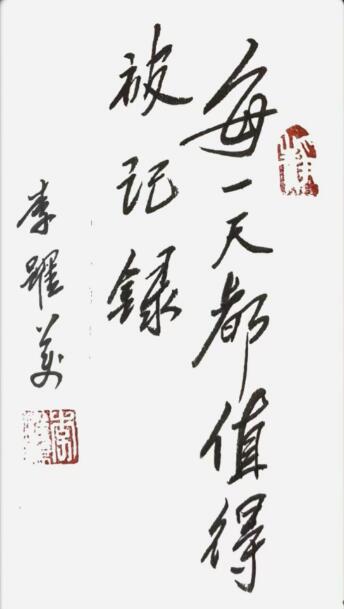 每一天都值得
被记录
李躍